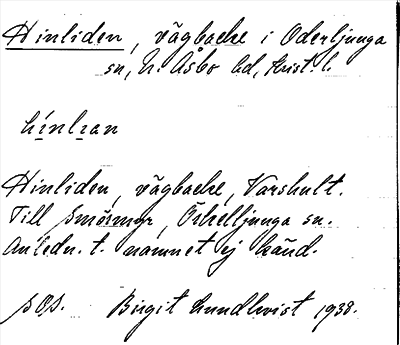 Hinliden, vägbacke i Oderljunga
sn, N. Åsbo hd, Krist. l.
hínlıan
Hinliden, vägbacke, Varshult.
Till Smörmyr, Örkelljunga sn.
Anledn. t. namnet ej känd.
SOS. Birgit Lundkvist 1938.